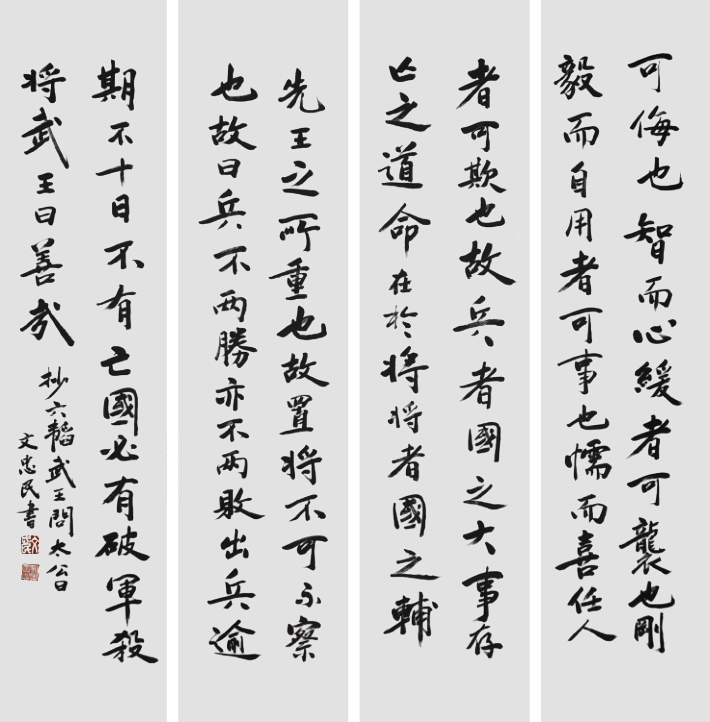 可侮也智而心緩者可襲也剛
毅而自用者可事也懦而喜任人
者可欺也故兵者國之大事存
亡之道命在於將將者國之輔
先王之所重也故置將不可不察
也故曰兵不两勝亦不两敗出兵逾
期不十日不有亡國必有破軍殺
将武王曰善哉
抄六韜武王問太公曰
文忠民書